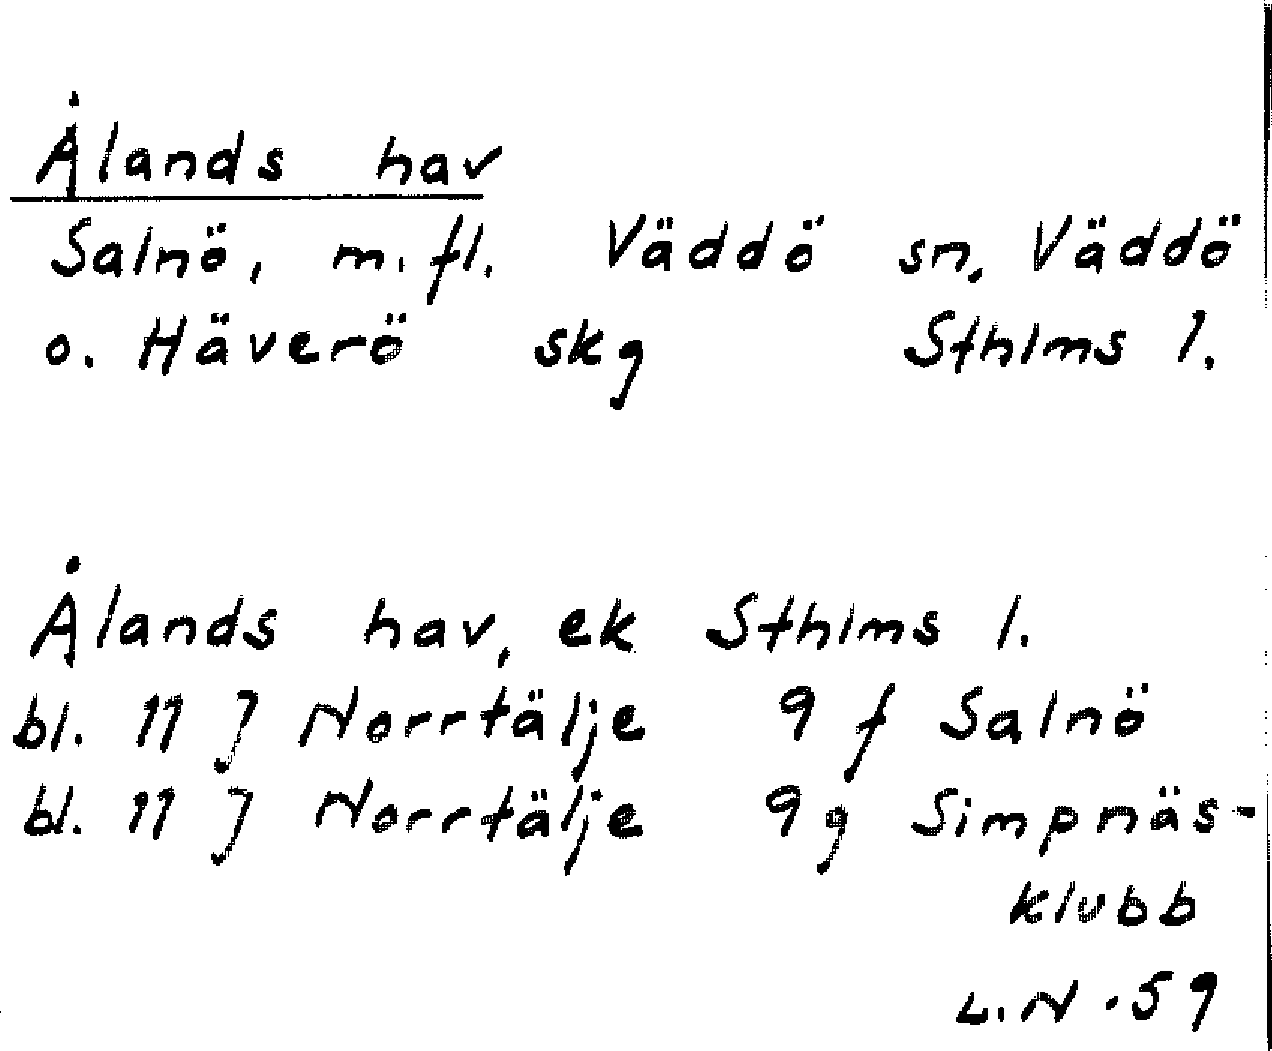 Ålands hav
Salnö, m.fl. Väddö sn, Väddö
o. Häverö skg Sthlms l.
Ålands hav, ek Sthlms l.
bl. 11 J Norrtälje 9 f Salnö
bl. 11 J Norrtälje 9 g Simpnäs-
klubb
L.N. 59